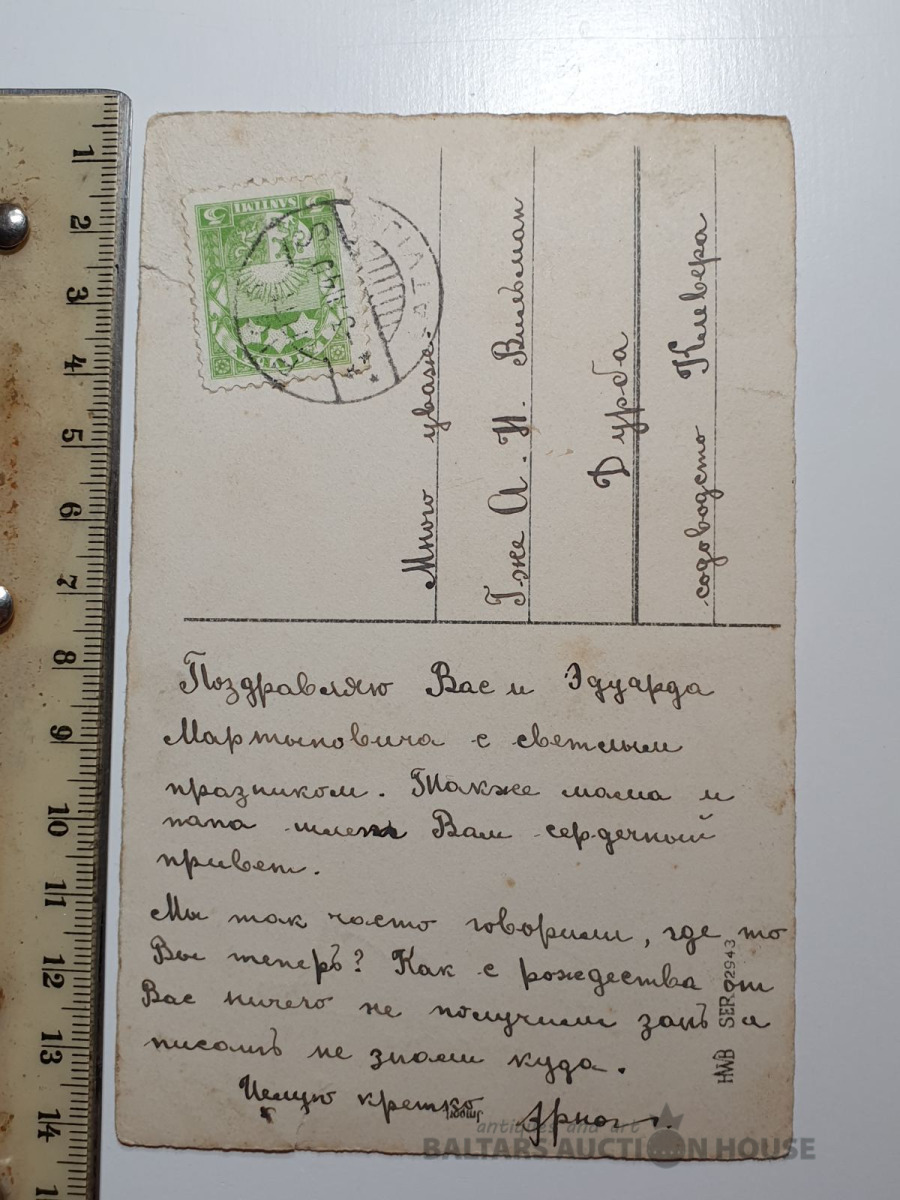 5 SANTIMI 5
LATVIJA
Много уваж.
Г-же А. И. Вильман
Дурба
садоводство Клевера
Поздравляю Вас и Эдуарда
Мартыновича с светлым
празником. Также мама и
папа шлют Вам сердечный
привет.
Мы так часто говорили, где то
Вы теперь? Как с рождества от
Вас ничего не получили
писать не знали куда.
Целую крепко
HWB SER 2943
Import
antiques and art
BALTARS AUCTION HOUSE
1
2
3
4
5
6
7
8
9
10
11
12
13
14